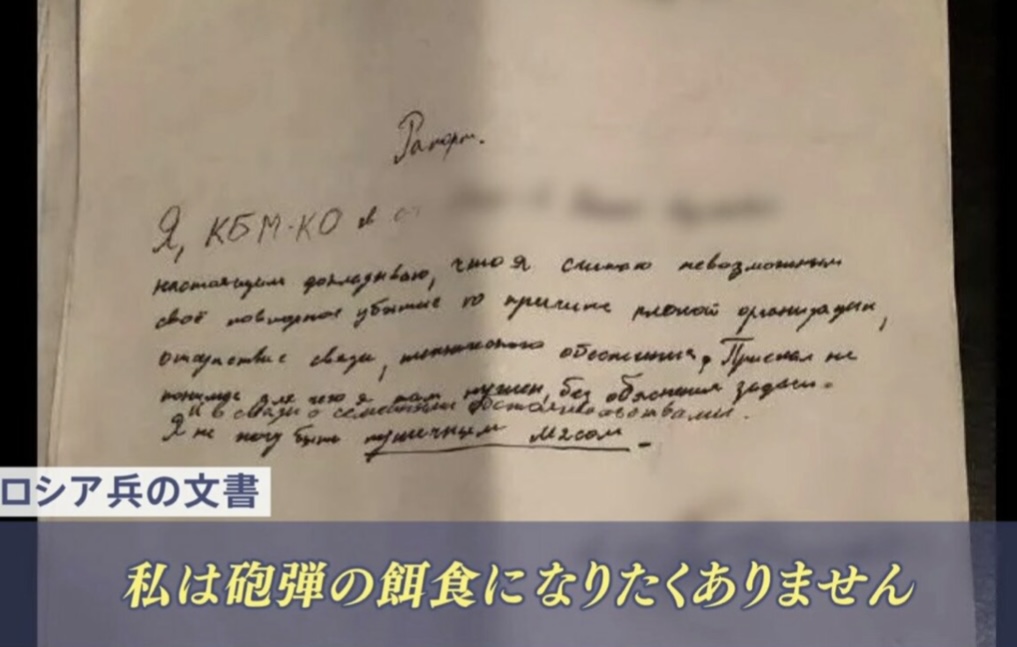 Рапорт.
Я, КБМ-КО в
настоящим докладываю, что я считаю невозможным
своё повторное убытие по причине плохой организации,
отсутствие связи, технического обеспечения, Приехал не
понимаю для чего я там нужен, без объяснения задачи.
и в связи с семейными обстоятельствами.
Я не хочу быть пушечным мясом
ロシア兵の文書
私は砲弾の餌食になりたくありません